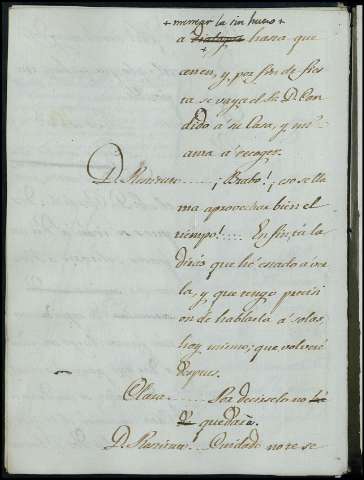 + menear la sin hueso +
a dialogar hasta que
cenen, y por fin de fies
ta se vaya el Sr. D. Can
dido á su Casa, y mi
ama á recoger.
D. Mariano..... ¡Brabo!, eso se lla
ma aprovechar bien el
tiempo!.... En fin, tu la
dirás que hé estado á ver
la, y que tengo precisi
on de hablarla á solas
hoy mismo; que volveré
despues.
Clara..... Por decirselo no
quedará.
D. Mariano..... Cuidado no te se